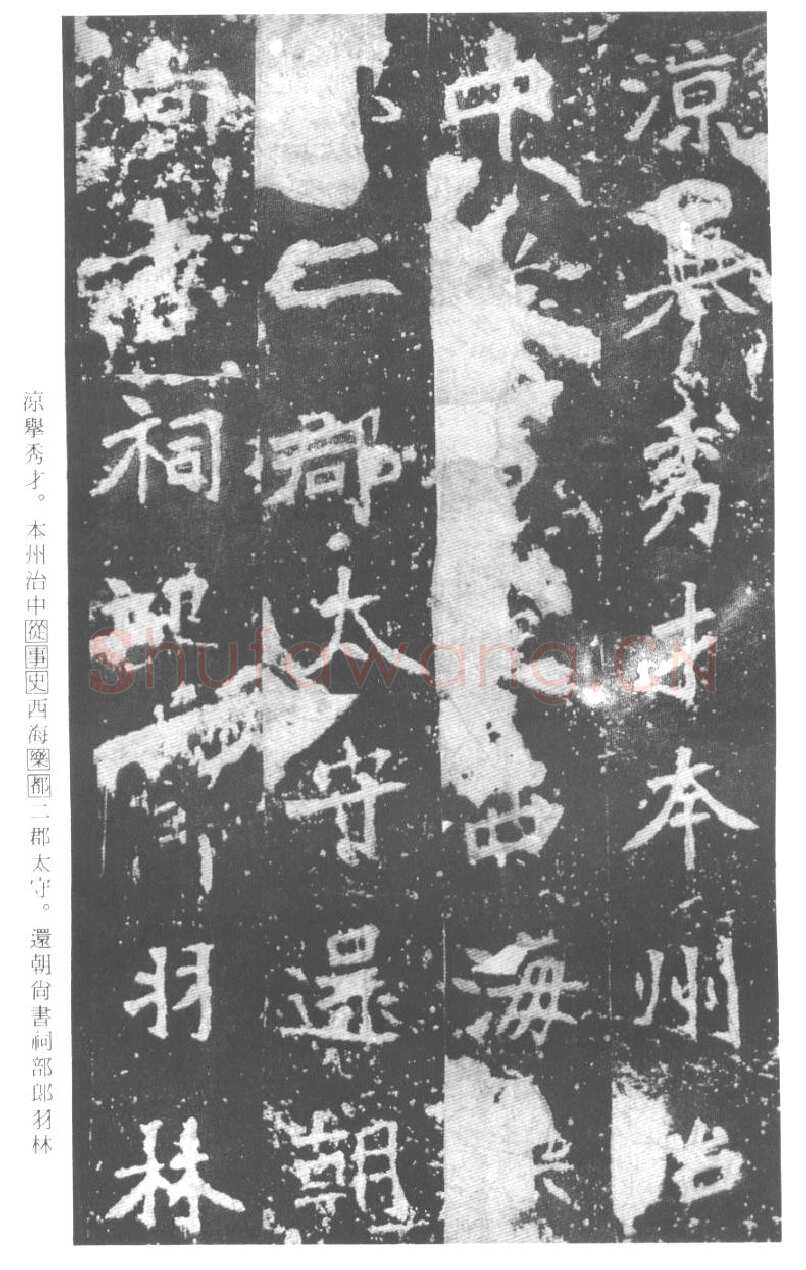 涼舉秀才本州治
中西海
二郡太守還朝
尚書祠部郎羽林
涼舉秀才。本州治中從事史西海樂都二郡太守。還朝尚書祠部郎羽林
Shufawang.CN